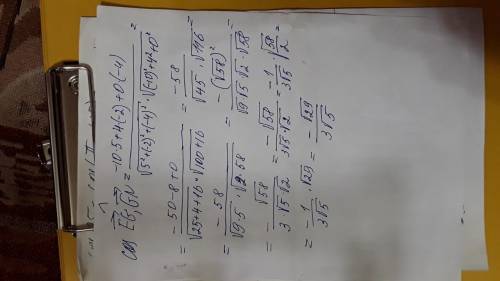 cos EG,^GN = (-10·5+4(-2)+0(-4))/(√(5²+(-2)²+(-4)²)·√((-10)²+4²+0²)) =
= (-50-8+0)/(√(25+4+16)·√(100+16)) = (-58)/(√45·√116) =
= (-58)/(√(9·5)·√(2·58)) = (-(√58)²)/(√9√5√2·√58) =
= -(√58)/(3√5√2) = (-√58)/(3√5·√2) = (-1)/(3√5)·√(58/2) =
= -1/(3√5)·√29 = -√29/(3√5)